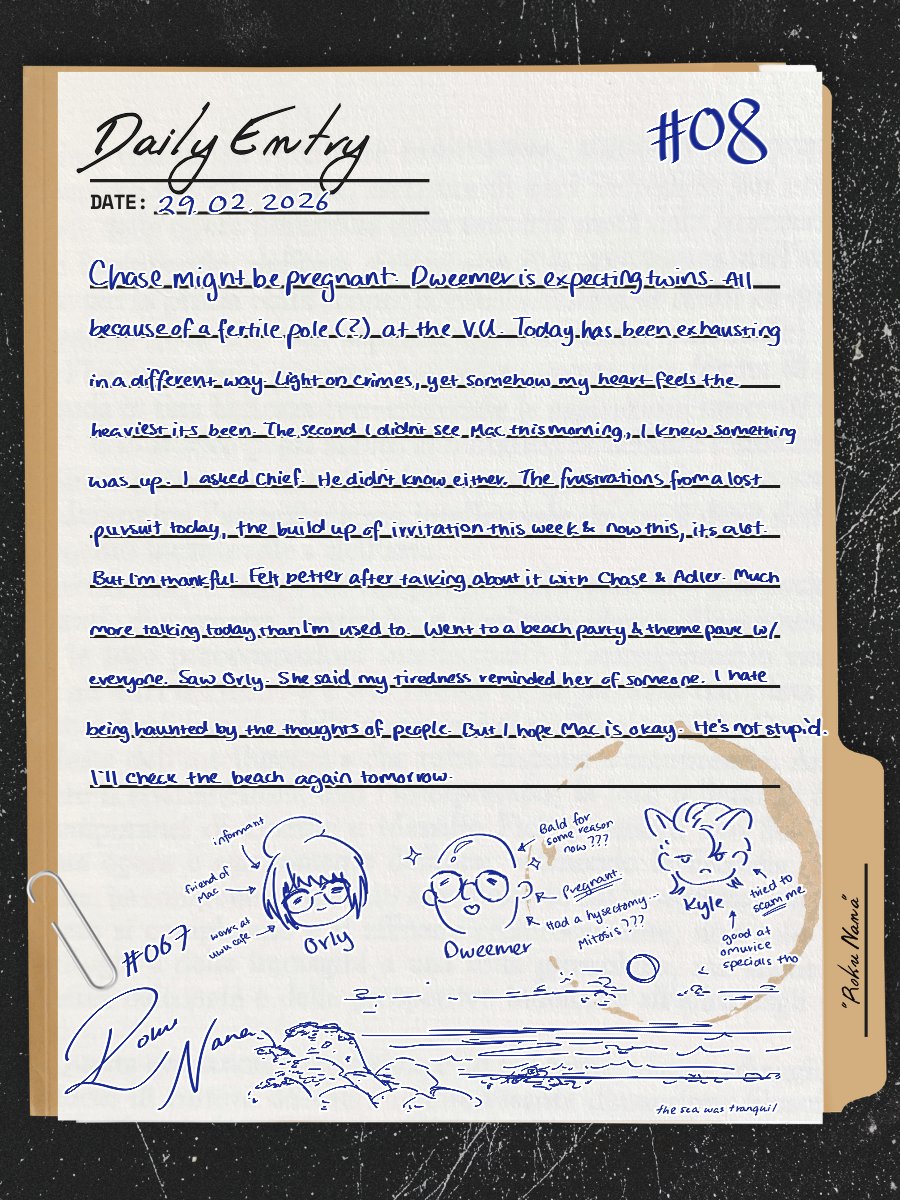 Daily Entry
#08
DATE: 29.02.2026
Chase might be pregnant. Dweemer is expecting twins. All
because of a fertile pole (?) at the V.U. Today has been exhausting
in a different way. Light on crimes, yet somehow my heart feels the
heaviest its been. The second I didn't see Mac this morning, I knew something
was up. I asked Chief. He didn't know either. The frustrations from a lost
pursuit today, the build up of irritation this week & now this, its a lot.
But I'm thankful. Felt better after talking about it with Chase & Adler. Much
more talking today than I'm used to. Went to a beach party & theme park w/
everyone. Saw Orly. She said my tiredness reminded her of someone. I hate
being haunted by the thoughts of people. But I hope Mac is okay. He's not stupid.
I'll check the beach again tomorrow.
informant
friend of
Mac
works at
uwu cafe
Orly
Bald for
some reason
now???
Pregnant.
Had a hysectomy...
Mitosis???
Dweemer
Kyle
tried to
scam me
good at
omurice
specials tho
#067
Roku
Nana
"Roku Nana"
the sea was tranquil